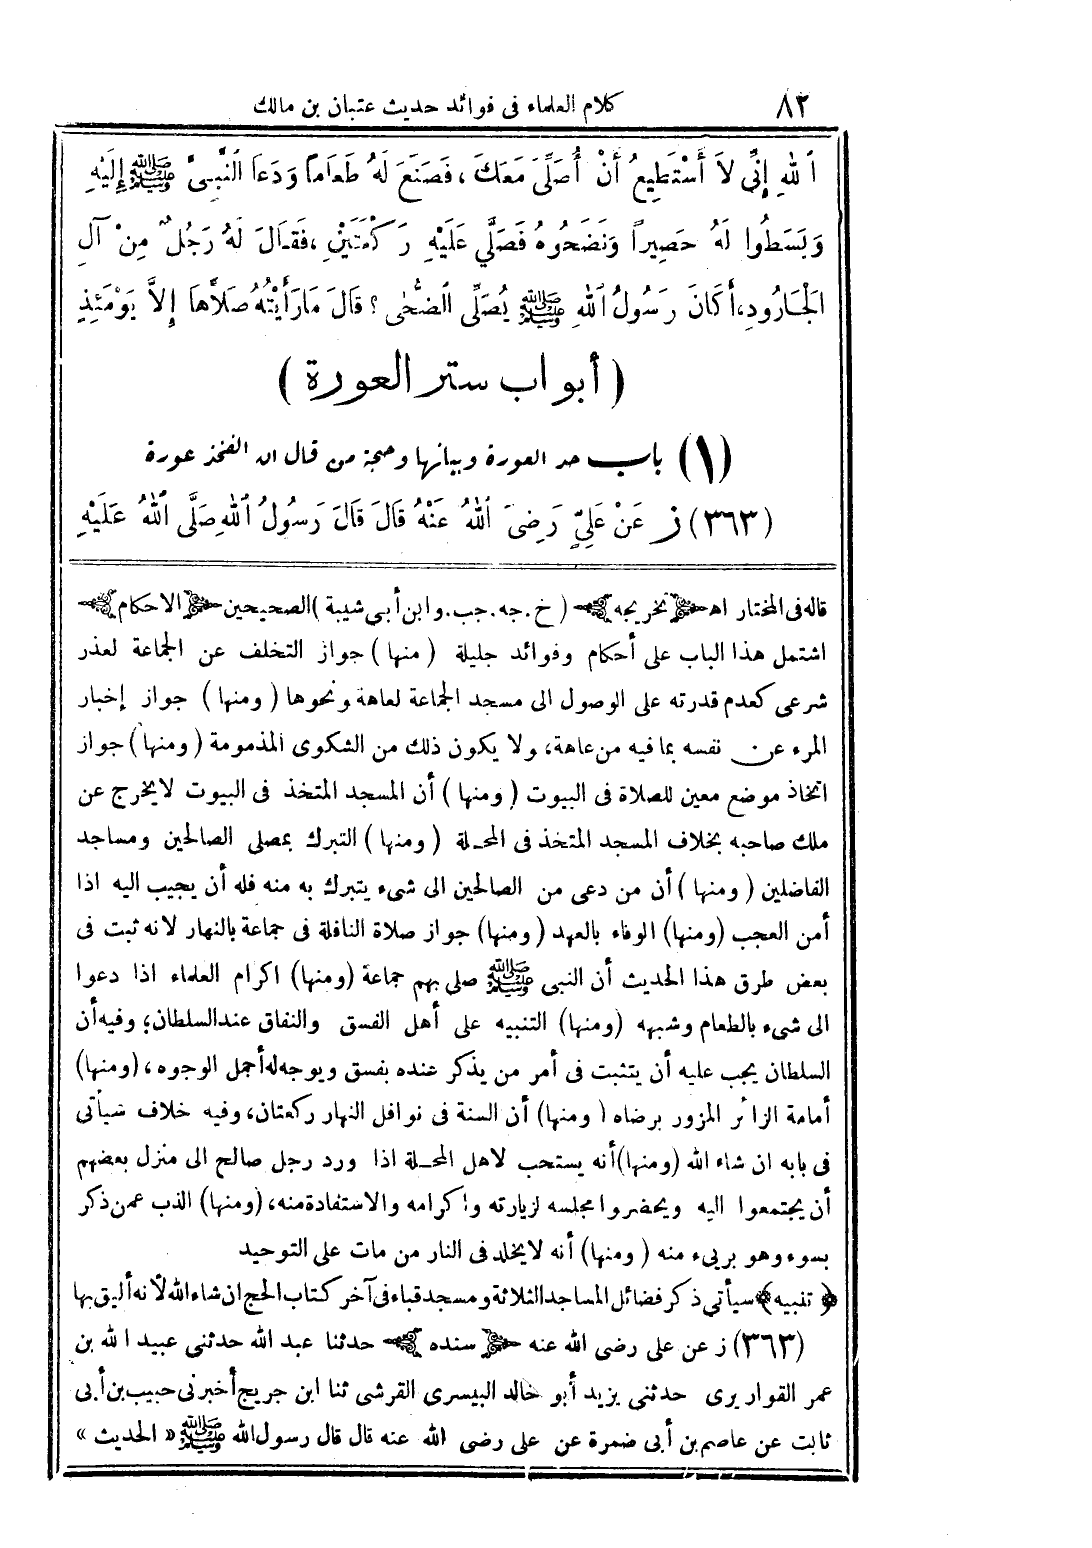 ٨٢ كلام العلماء فى فوائد حديث عتبان بن مالك
اَللهِ إِنِّى لاَ أَسْتَطِيعُ أَنْ أُصَلِّىَ مَعَكَ، فَصَنَعَ لَهُ طَعَاماً وَدَعَا النَّبِىَّ ﷺ إِلَيْهِ
وَبَسَطُوا لَهُ حَصِيراً وَنَضَحُوهُ فَصَلَّى عَلَيْهِ رَكْعَتَيْنِ، فَقَالَ لَهُ رَجُلٌ مِنْ آلِ
الْجَارُودِ، أَكَانَ رَسُولُ اَللهِ ﷺ يُصَلِّى اَلضُّحٰى؟ قَالَ مَارَأَيْتُهُ صَلاَّهَا إِلاَّ يَوْمَئِذٍ
( أبواب ستر العورة )
(١) باب حد العورة وبيانها وحجة من قال ان الفخذ عورة
(٣٦٣) ز عَنْ عَلِيٍّ رَضِىَ اَللهُ عَنْهُ قَالَ قَالَ رَسُولُ اَللهِ صَلَّى اَللهُ عَلَيْهِ
قاله فى المختار اه ﴿تخريجه﴾ ( خ. جه. جب. وابن أبى شيبة ) الصحيحين ﴿الاحكام﴾
اشتمل هذا الباب على أحكام وفوائد جليلة ( منها ) جواز التخلف عن الجماعة لعذر
شرعى كعدم قدرته على الوصول الى مسجد الجماعة لعاهة ونحوها ( ومنها ) جواز إخبار
المرء عن نفسه بما فيه من عاهة، ولا يكون ذلك من الشكوى المذمومة ( ومنها ) جواز
اتخاذ موضع معين للصلاة فى البيوت ( ومنها ) أن المسجد المتخذ فى البيوت لا يخرج عن
ملك صاحبه بخلاف المسجد المتخذ فى المحلة ( ومنها ) التبرك بمصلى الصالحين ومساجد
الفاضلين ( ومنها ) أن من دعى من الصالحين الى شىء يتبرك به منه فله أن يجيب اليه اذا
أمن العجب (ومنها) الوفاء بالعهد ( ومنها) جواز صلاة النافلة فى جماعة بالنهار لانه ثبت فى
بعض طرق هذا الحديث أن النبى ﷺ صلى بهم جماعة (ومنها) اكرام العلماء اذا دعوا
الى شىء بالطعام وشبهه (ومنها) التنبيه على أهل الفسق والنفاق عند السلطان؛ وفيه أن
السلطان يجب عليه أن يتثبت فى أمر من يذكر عنده بفسق ويوجه له أجمل الوجوه، (ومنها)
أمامة الزائر المزور برضاه ( ومنها) أن السنة فى نوافل النهار ركعتان، وفيه خلاف سيأتى
فى بابه ان شاء الله (ومنها) أنه يستحب لاهل المحلة اذا ورد رجل صالح الى منزل بعضهم
أن يجتمعوا اليه ويحضروا مجلسه لزيارته واكرامه والاستفادة منه، (ومنها) الذب عمن ذكر
بسوء وهو برىء منه ( ومنها) أنه لا يخلد فى النار من مات على التوحيد
﴿ تنبيه ﴾ سيأتى ذكر فضائل المساجد الثلاثة ومسجد قباء فى آخر كتاب الحج ان شاء الله لأنه أليق بها
(٣٦٣) ز عن على رضى الله عنه ﴿سنده﴾ حدثنا عبد الله حدثنى عبيد الله بن
عمر القواريرى حدثنى يزيد أبو خالد البيسرى القرشى ثنا ابن جريج أخبرنى حبيب بن أبى
ثابت عن عاصم بن أبى ضمرة عن على رضى الله عنه قال قال رسول الله ﷺ « الحديث »